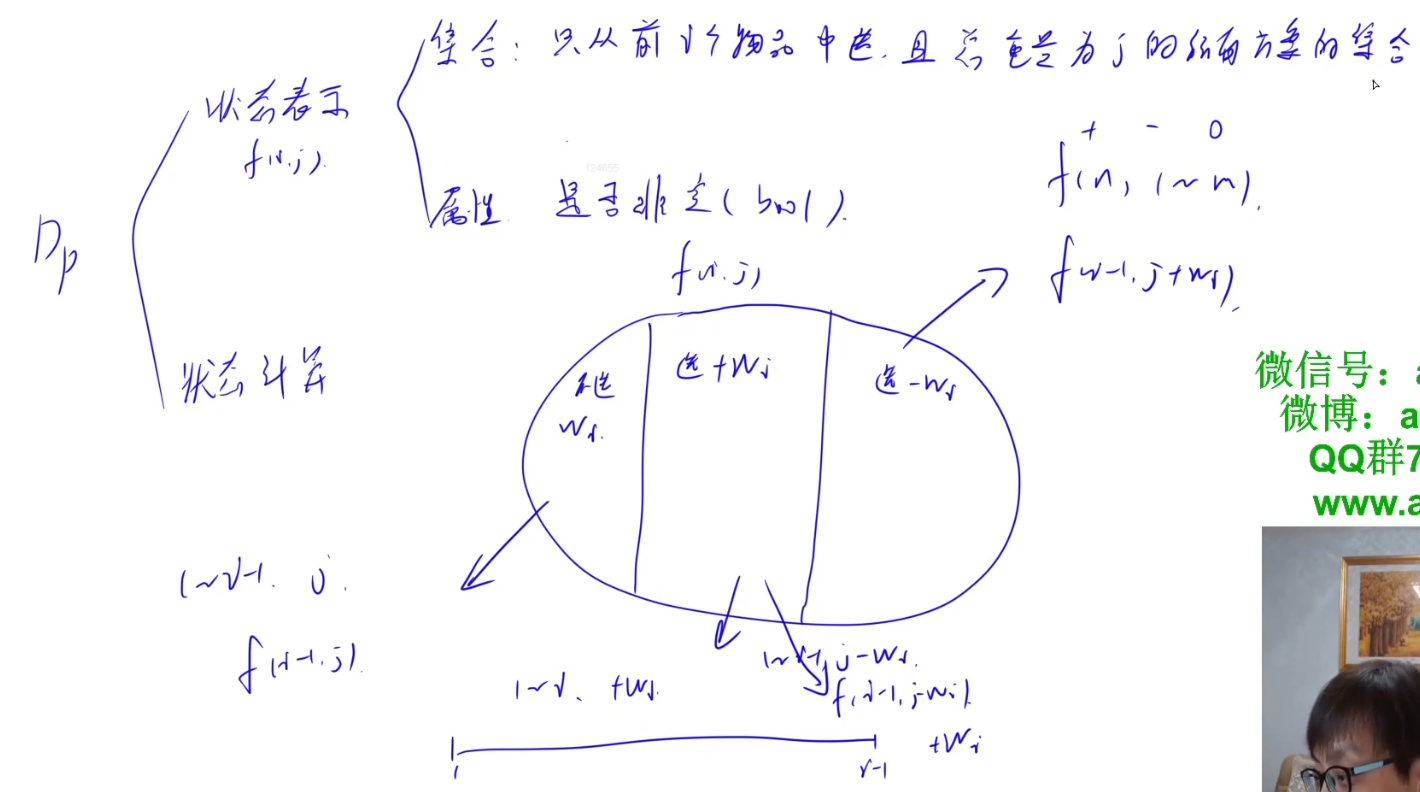 集合：只从前i个物品中选，且总重量为j的所有方案的集合
状态表示
f(i,j).
+ - 0
f(n, 1~m).
124655
属性 是否非空(bool).
Dp
f(i,j)
f(i-1, j+wi).
不选
wi.
选+wi
选-wi
状态计算
微信号：a
微博：a
QQ群7
www.a
1~i-1. j.
f(i-1,j).
1~i-1, j-wi.
1~i、+wi.
f(i-1,j-wi).
+wi
1
i-1